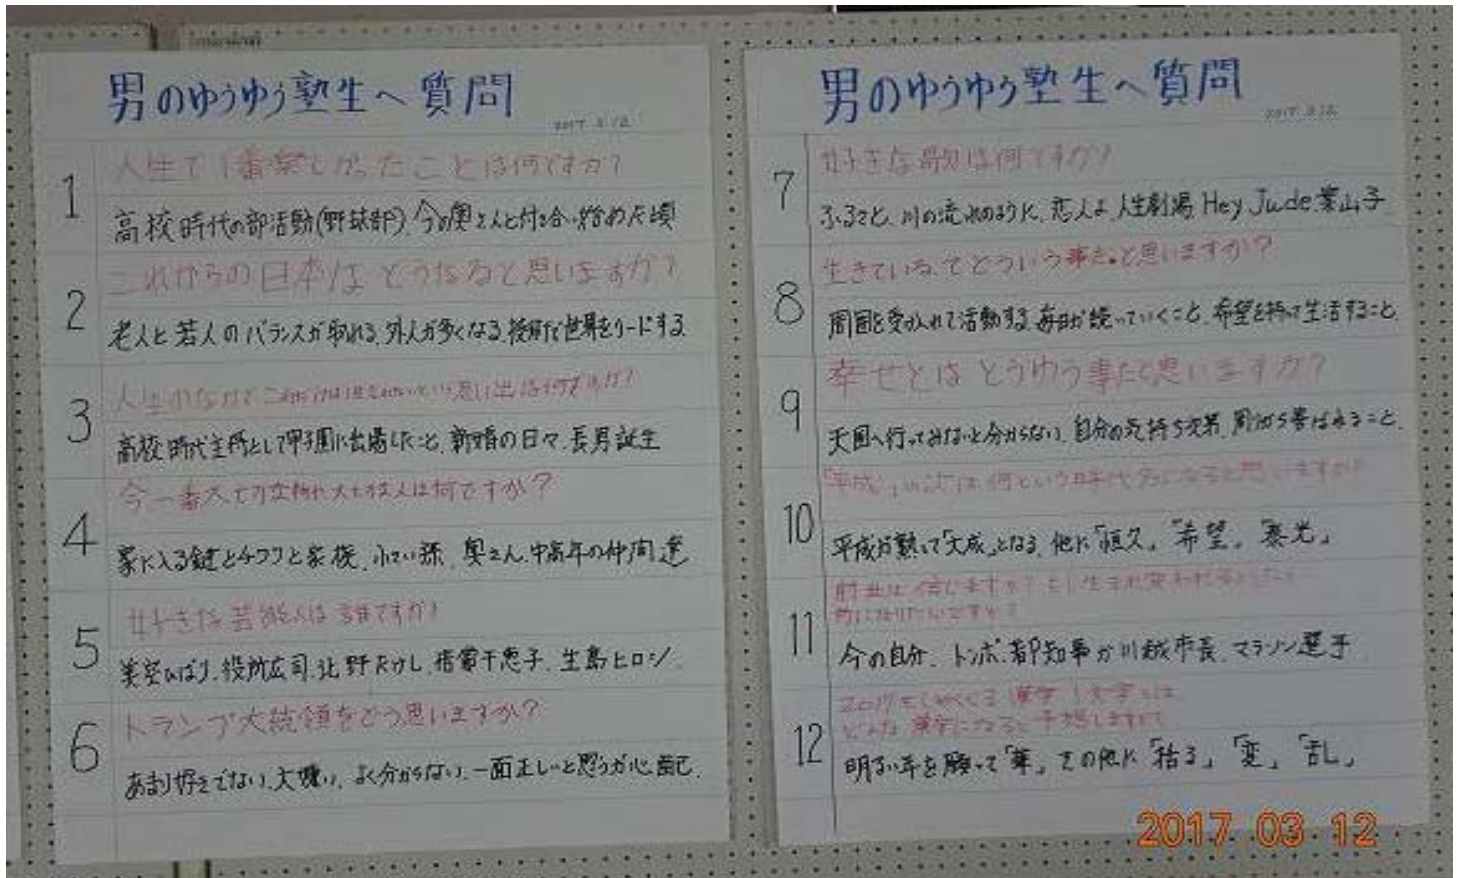 男のゆうゆう塾生へ質問
2017.3.12
1
人生で1番楽しかったことは何ですか?
高校時代の部活動(野球部)、今の奥さんと付き合い始めた頃
2
これからの日本はどうなると思いますか?
老人と若人のバランスが取れる、外人が多くなる、技術で世界をリードする
3
人生のなかでこれだけは忘れないという思い出は何ですか?
高校時代主将として甲子園に出場したこと、新婚の日々、長男誕生
4
今一番大切な物や大切な人は何ですか?
家に入る鍵とチワワと家族、小さい孫、奥さん、中高年の仲間達
5
好きな芸能人は誰ですか?
美空ひばり、役所広司、北野たけし、倍賞千恵子、生島ヒロシ
6
トランプ大統領をどう思いますか?
あまり好きでない、大嫌い、よく分からない、一面正しいと思うが心配
男のゆうゆう塾生へ質問
2017.3.12
7
好きな歌は何ですか?
ふるさと、川の流れのように、恋人よ、人生劇場、Hey Jude
8
生きているってどういう事だと思いますか?
周囲を受け入れて活動する、毎日が続いていくこと、希望を持って生活すること
9
幸せとはどうゆう事だと思いますか?
天国へ行ってみないと分からない、自分の気持ち次第、周りから喜ばれること
10
「平成」の次は何という時代名になると思いますか?
平成が熟して「大成」となる、他に「恒久」「希望」「泰光」
11
前世は信じますか?もし生まれ変われるとしたら
何になりたいですか?
今の自分、トンボ、都知事か川越市長、マラソン選手
12
2017をしめくくる漢字1文字は
どんな漢字になると予想しますか?
明るい年を願って「華」その他に「括る」「変」「乱」
2017 03 12